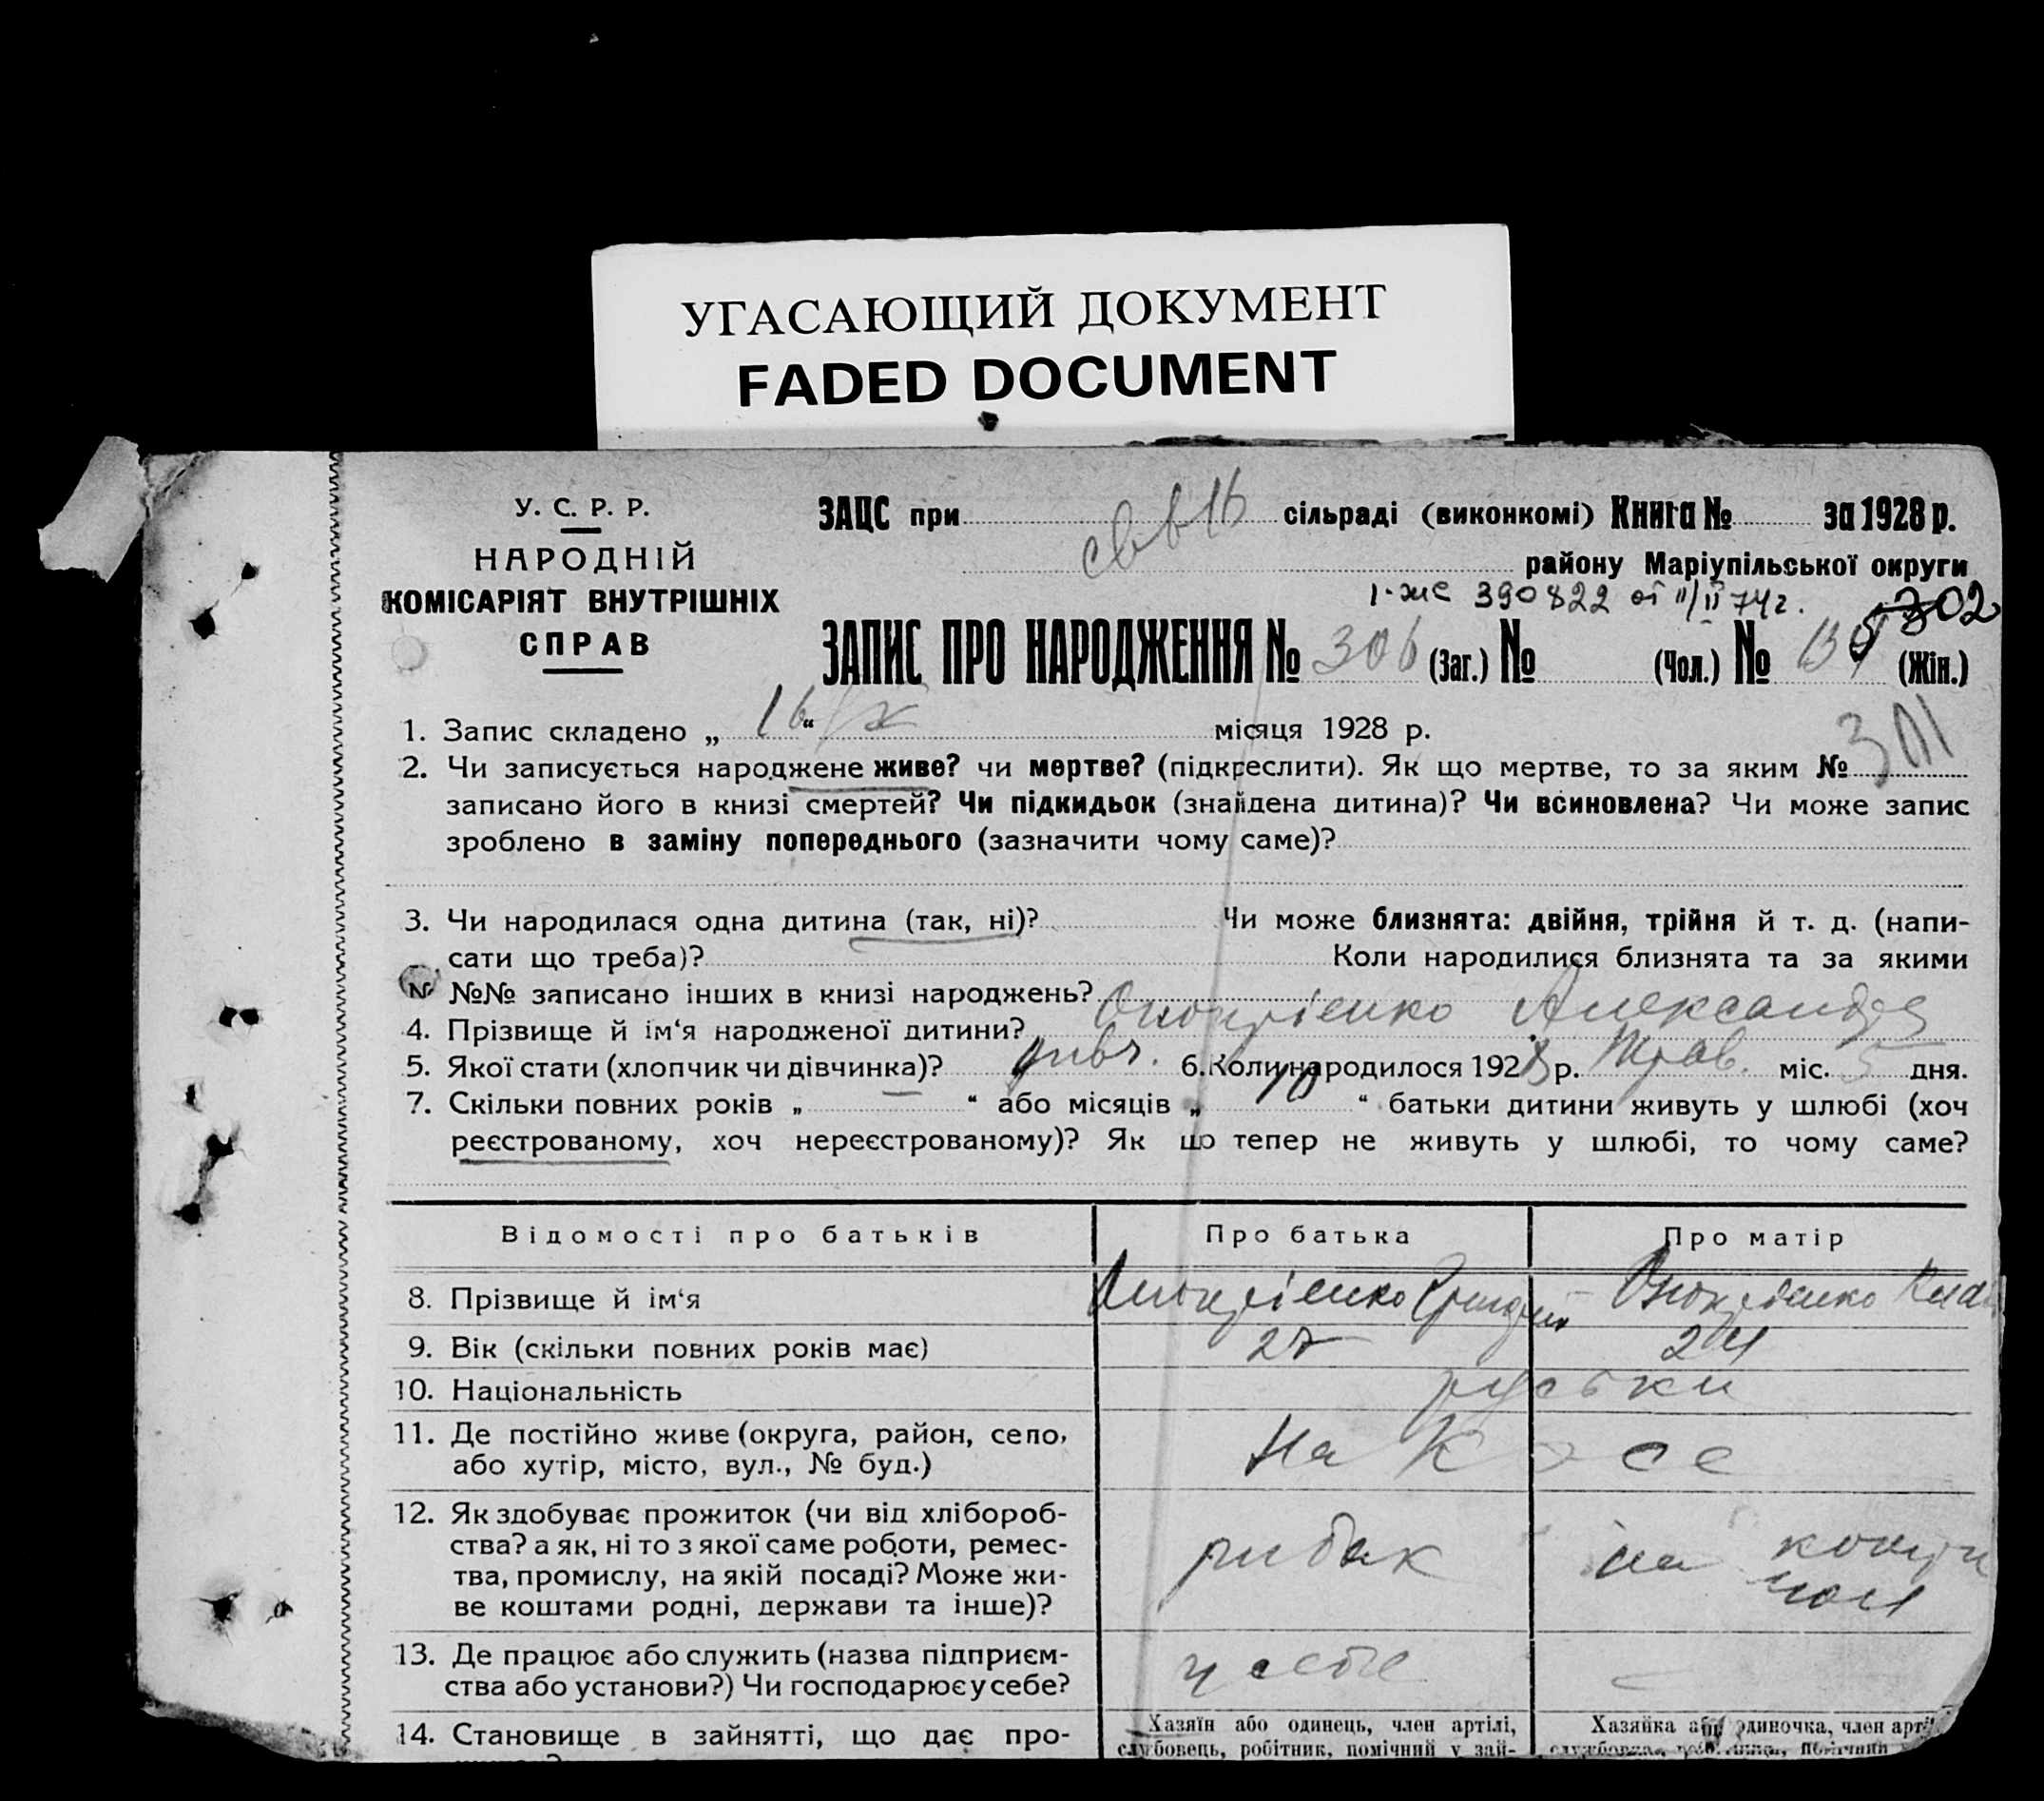 УГАСАЮЩИЙ ДОКУМЕНТ
FADED DOCUMENT
У. С. Р. Р.
НАРОДНІЙ
КОМІСАРІЯТ ВНУТРІШНІХ
СПРАВ
ЗАЦС при сільраді (виконкомі) Книга № за 1928 р.
району Маріупільської округи
390822 от 11/II 74 г. 302
ЗАПИС ПРО НАРОДЖЕННЯ № 306 (Заг.) № (Чол.) № (Жін.)
301
1. Запис складено „ 16 “ X місяця 1928 р.
2. Чи записується народжене живе? чи мертве? (підкреслити). Як що мертве, то за яким №
записано його в книзі смертей? Чи підкидьок (знайдена дитина)? Чи всиновлена? Чи може запис
зроблено в заміну попереднього (зазначити чому саме)?
3. Чи народилася одна дитина (так, ні)? Чи може близнята: двійня, трійня й т. д. (напи-
сати що треба)? Коли народилися близнята та за якими
№№ записано інших в книзі народжень?
4. Прізвище й ім‘я народженої дитини? Онопрієнко Александра
5. Якої стати (хлопчик чи дівчинка)? дивч. 6. Коли народилося 1928 р. Трав. міс. 5 дня.
7. Скільки повних років „ — “ або місяців „ 10 “ батьки дитини живуть у шлюбі (хоч
реєстрованому, хоч нереєстрованому)? Як що тепер не живуть у шлюбі, то чому саме?
Відомості про батьків Про батька Про матір
8. Прізвище й ім‘я Онопрієнко Онопрієнко
9. Вік (скільки повних років має) 27 24
10. Національність руські
11. Де постійно живе (округа, район, село,
або хутір, місто, вул., № буд.) на Косе
12. Як здобуває прожиток (чи від хлібороб-
ства? а як, ні то з якої саме роботи, ремес-
тва, промислу, на якій посаді? Може жи-
ве коштами родні, держави та інше)? рибак на
13. Де працює або служить (назва підприєм-
ства або установи?) Чи господарює у себе?
14. Становище в зайнятті, що дає про-
Хазяїн або одинець, член артілі,
службовець, робітник, помічний у зай-
Хазяйка або одиночка, член арт